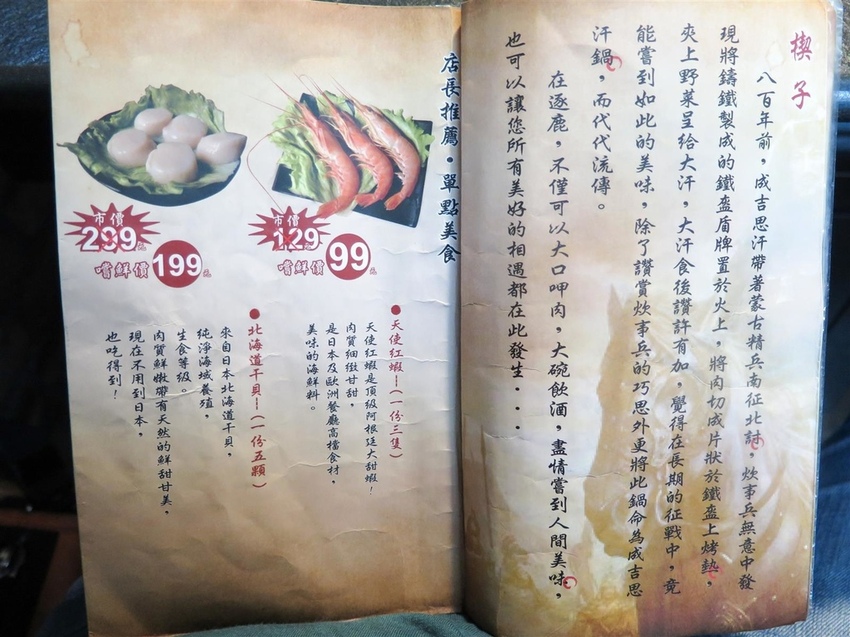 楔子
八百年前，成吉思汗帶著蒙古精兵南征北討，炊事兵無意中發
現將鑄鐵製成的鐵盔盾牌置於火上，將肉切成片狀於鐵盔上烤熱，
夾上野菜呈給大汗，大汗食後讚許有加，覺得在長期的征戰中，竟
能嘗到如此的美味，除了讚賞炊事兵的巧思外更將此鍋命為成吉思
汗鍋，而代代流傳。
在逐鹿，不僅可以大口呷肉，大碗飲酒，盡情嘗到人間美味，
也可以讓您所有美好的相遇都在此發生...
店長推薦·單點美食
市價
129元
嚐鮮價 99元
●天使紅蝦-(一份三隻)
天使紅蝦是頂級阿根廷大甜蝦！
肉質細緻甘甜，
是日本及歐洲餐廳高檔食材，
美味的海鮮料。
市價
299元
嚐鮮價 199元
●北海道干貝-(一份五顆)
來自日本北海道干貝，
純淨海域養殖，
生食等級。
肉質鮮嫩帶有天然的鮮甜甘美，
現在不用到日本，
也吃得到！